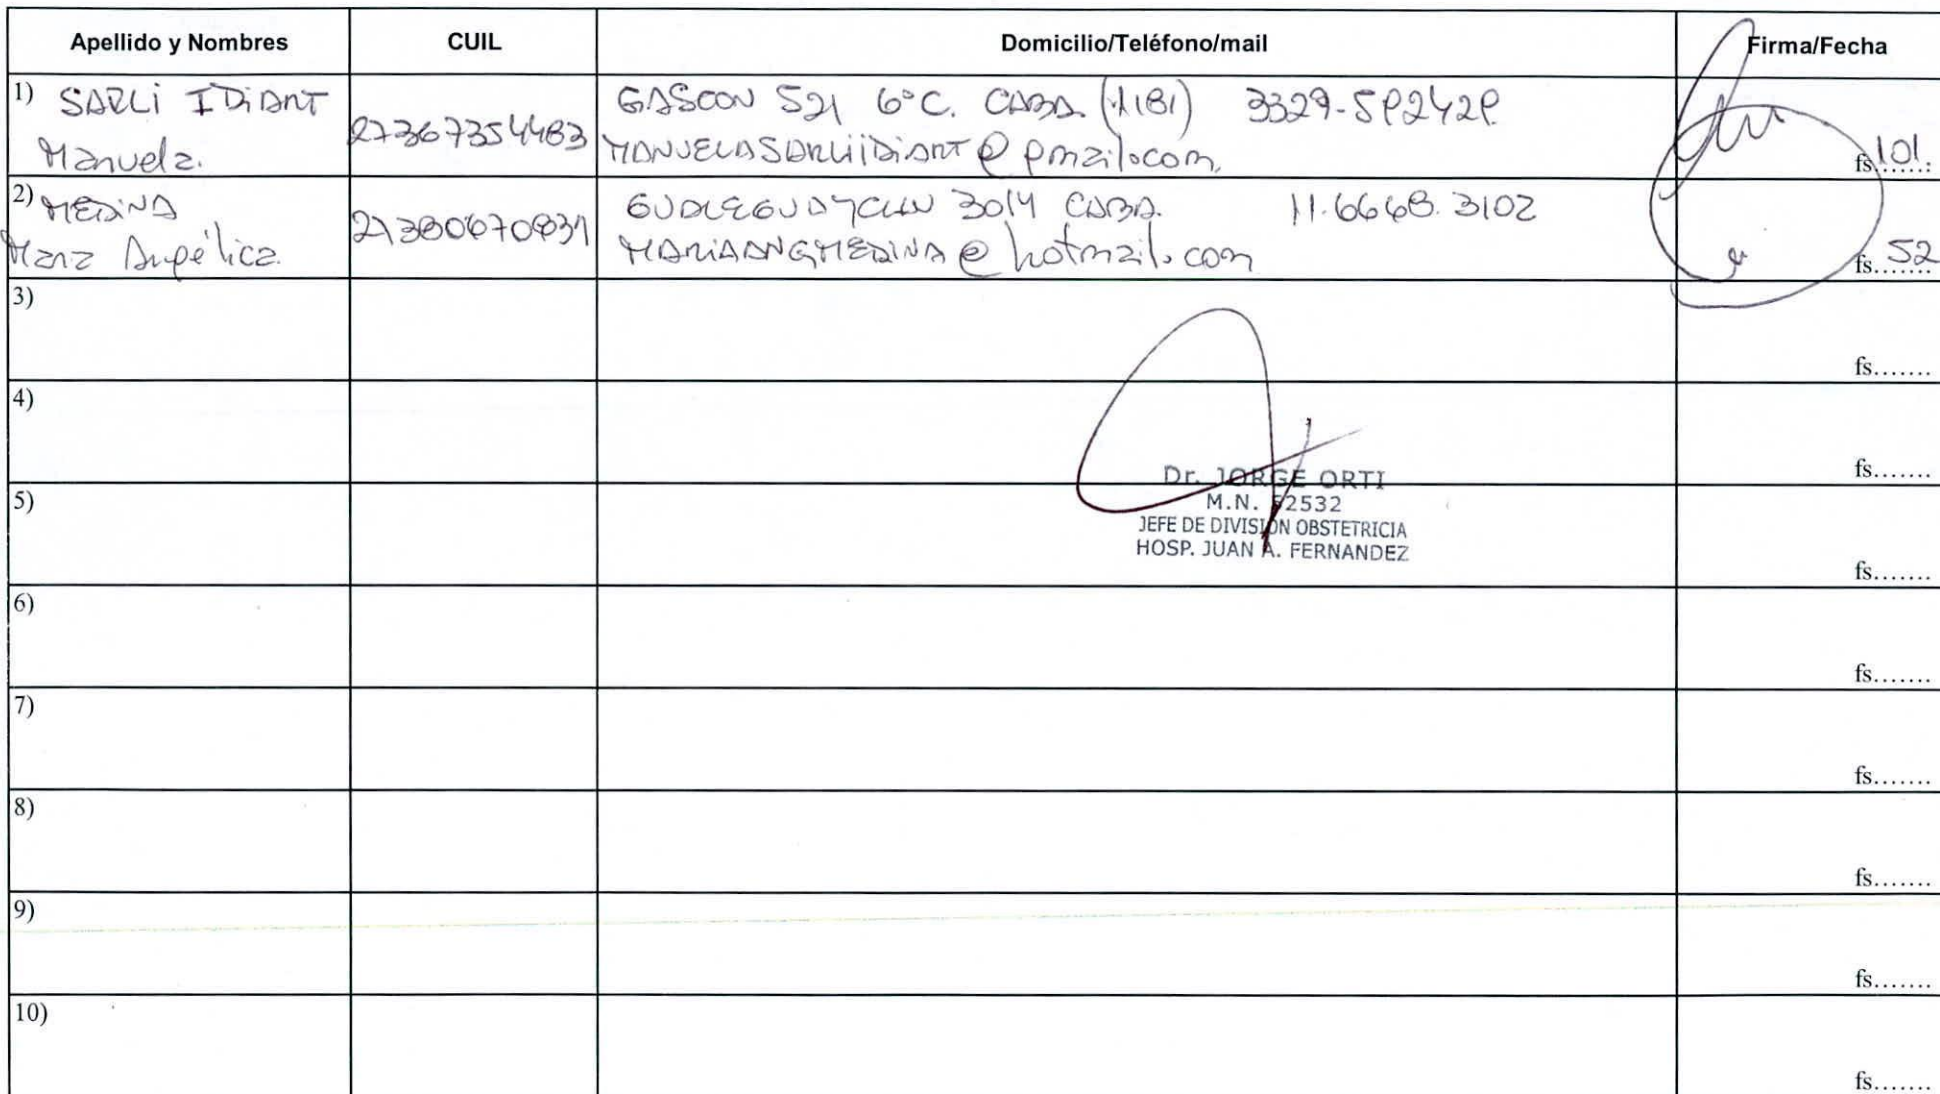 Apellido y Nombres CUIL Domicilio/Teléfono/mail Firma/Fecha
1) SARLI IDIART 27367354483 GASCON 521 6°C. CABA. (1181) 3329-592429
Manuela. MANUELASARLIIDIART@gmail.com. fs.101.
2) MEDINA GUALEGUAYCHU 3014 CABA. 11.6668.3102
Maria Angélica. MARIAANGMEDINA@hotmail.com fs. 52
3)
fs.......
4)
fs.......
Dr. JORGE ORTI
5) M.N. 52532
JEFE DE DIVISION OBSTETRICIA
HOSP. JUAN A. FERNANDEZ
fs.......
6)
fs.......
7)
fs.......
8)
fs.......
9)
fs.......
10)
fs.......